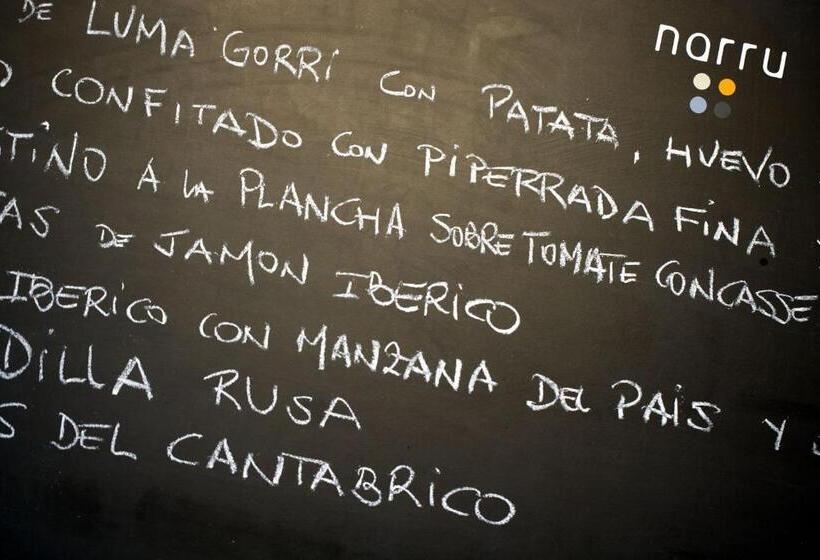 DE LUMA GORRi CON PATATA, HUEVO
narru
O CONFITADO CON PiPERRADA FiNA
TiNO A LA PLANCHA SOBRE TOMATE CONCASSE
AS DE JAMON IBERICO
IBERICO CON MANZANA DEL PAiS Y
DiLLA RUSA
S DEL CANTABRiCO